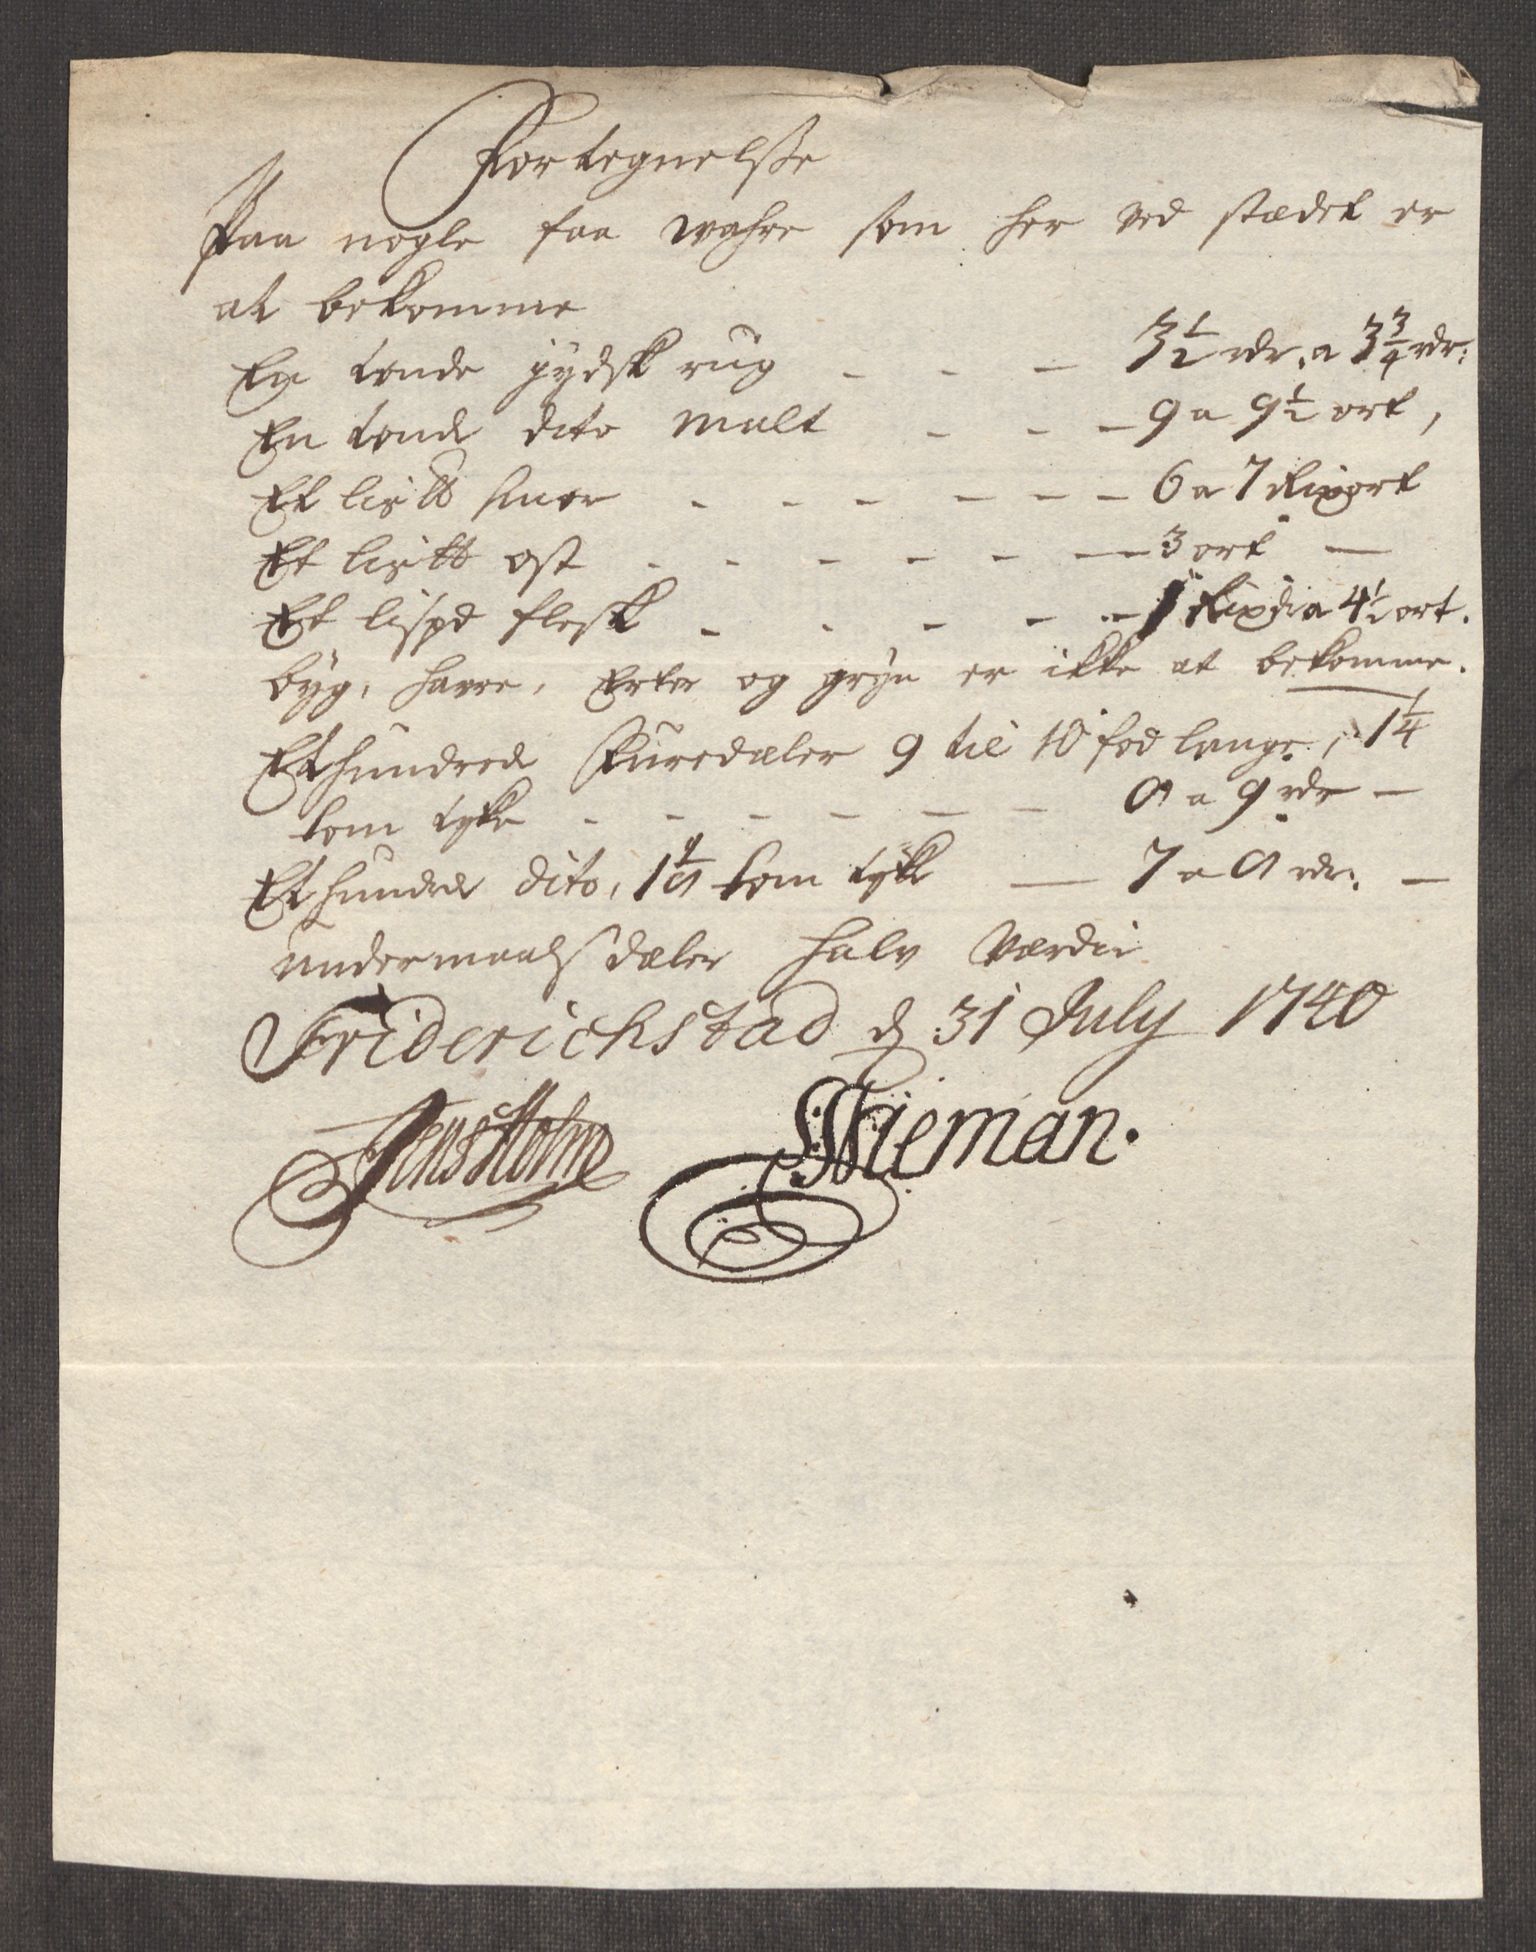 Fortegnelsse
Paa nogle faa wahre som her ved stædet er
at bekomme
En tønde jydsk rug - - - 3 1/2 rdr. a 3 3/4 rdr:
En tønde dito malt - - - 9 a 9 1/2 ort,
Et lis℔ smør - - - - - - 6 a 7 Rixort
Et lis℔ ost - - - - - - 3 ort -
Et lispd flesk - - - - - 1 Rixdr a 4 1/2 ort.
byg, havre, Erter og gryn er ikke at bekomme.
Et hundred skuredæler 9 til 10 fod lange, 1 1/4
tom tyke - - - - - - 8 a 9 rdr -
Et hundred dito, 1 1/8 tom tyke - 7 a 8 rdr: -
undermaals dæler halv værdie
Friderichstad d 31 July 1740
Jens Holm Nieman.